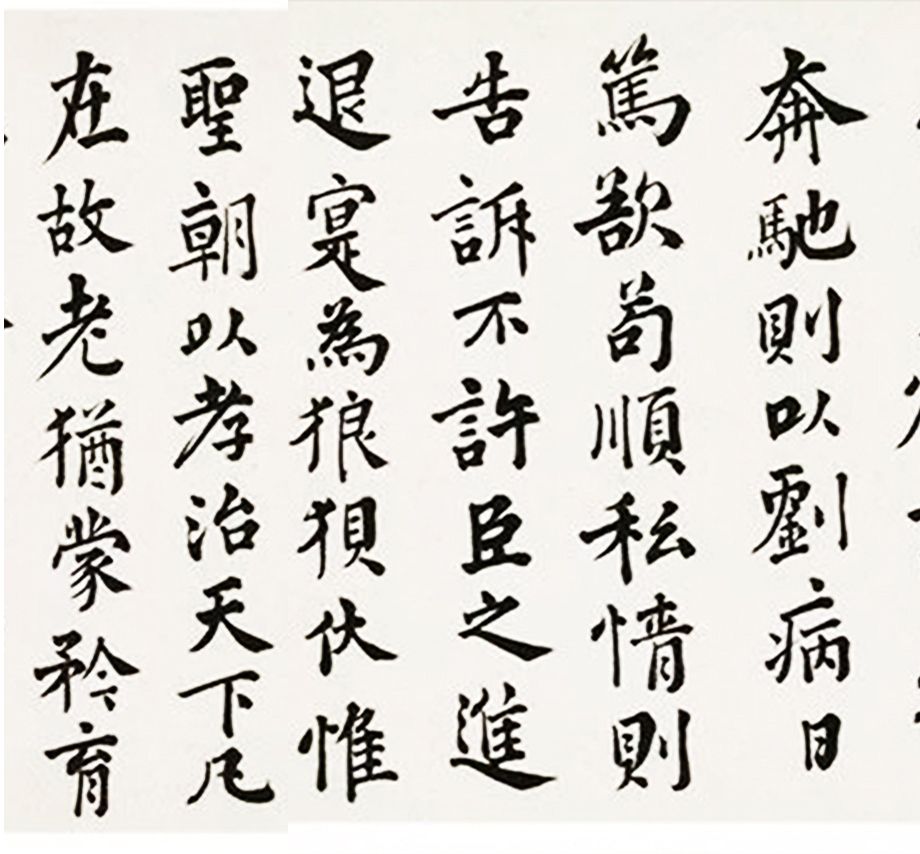 奔馳則以劉病日
篤欲苟順私情則
告訴不許臣之進
退寔為狼狽伏惟
聖朝以孝治天下凡
在故老猶蒙矜育